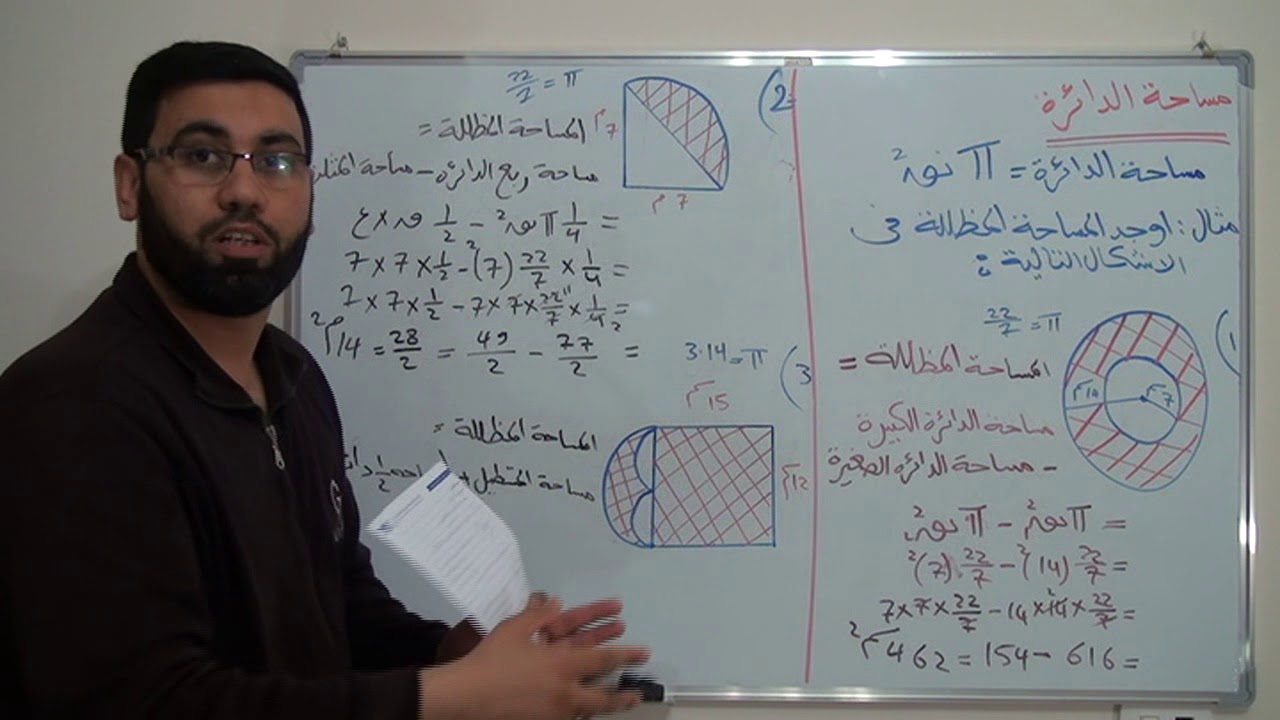 مساحة الدائرة
مساحة الدائرة = π نق²
مثال : اوجد المساحة المظللة في
الاشكال التالية :
(1
22/7 = π
المساحة المظللة =
مساحة الدائرة الكبيرة
- مساحة الدائرة الصغيرة
14م
7م
= π نق² - π نق²
= 22/7 (14)² - 22/7 (7)²
= 22/7 × 14 × 14 - 22/7 × 7 × 7
= 616 - 154 = 462 م²
(2
22/7 = π
7م
7م
المساحة المظللة =
مساحة ربع الدائرة - مساحة المثلث
= 1/4 π نق² - 1/2 ق × ع
= 1/4 × 22/7 (7)² - 1/2 × 7 × 7
= 1/4 × 22/7 × 7 × 7 - 1/2 × 7 × 7
= 77/2 - 49/2 = 28/2 = 14م²
(3
3.14 = π
15م
12م
المساحة المظللة =
مساحة المستطيل + 1/2